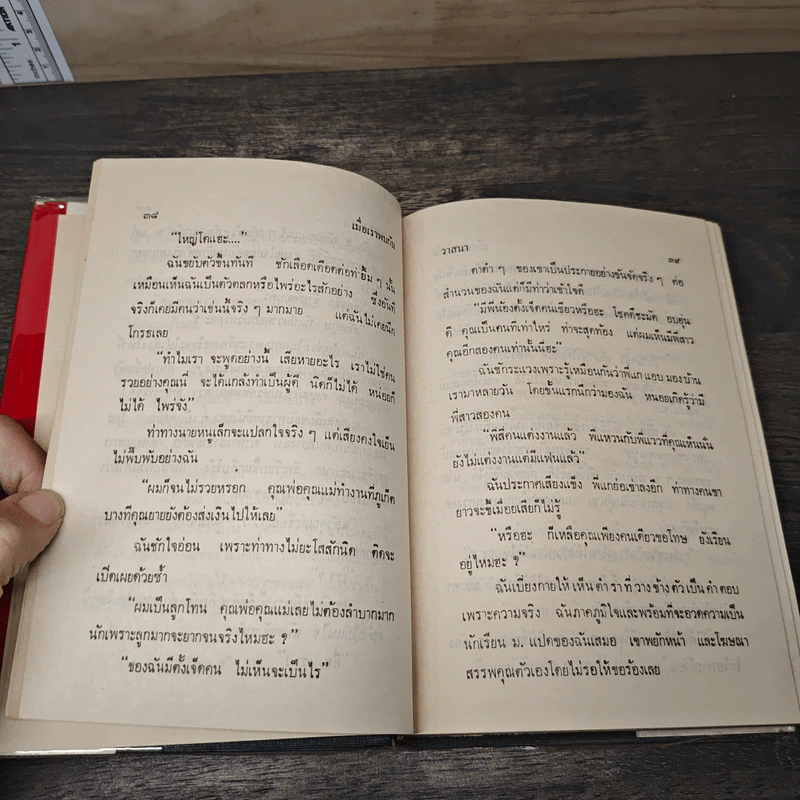 ๓๘
เมื่อเราพบกัน
“ใหญ่โตแฮะ....”
ฉันขยับตัวขึ้นทันที ชักเลือดเดือดต่อท่ายิ้ม ๆ นั้น
เหมือนเห็นฉันเป็นตัวตลกหรือไพร่อะไรสักอย่าง ซึ่งอันที่
จริงก็เคยมีคนว่าเช่นนี้จริง ๆ มากมาย แต่ฉันไม่เคยนึก
โกรธเลย
“ทำไมเรา จะพูดอย่างนี้ เสียหายอะไร เราไม่ใช่คน
รวยอย่างคุณนี่ จะได้แกล้งทำเป็นผู้ดี นิดก็ไม่ได้ หน่อยก็
ไม่ได้ ไพร่จัง”
ท่าทางนายหนูเล็กจะแปลกใจจริง ๆ แต่เสียงคงใจเย็น
ไม่พึ่บพั่บอย่างฉัน
“ผมก็จนไม่รวยหรอก คุณพ่อคุณแม่ทำงานที่ภูเก็ต
บางทีคุณยายยังต้องส่งเงินไปให้เลย”
ฉันชักใจอ่อน เพราะท่าทางไม่ยะโสสักนิด คิดจะ
เปิดเผยด้วยซ้ำ
“ผมเป็นลูกโทน คุณพ่อคุณแม่เลยไม่ต้องลำบากมาก
นักเพราะลูกมากจะยากจนจริงไหมฮะ ?”
“ของฉันมีตั้งเจ็ดคน ไม่เห็นจะเป็นไร”
วาสนา
๓๙
ตาดำ ๆ ของเขาเป็นประกายอย่างขันจัดจริง ๆ ต่อ
สำนวนของฉันแต่ก็มีท่าว่าเข้าใจดี
“มีพี่น้องตั้งเจ็ดคนเชียวหรือฮะ โชคดีชะมัด อบอุ่น
ดี คุณเป็นคนที่เท่าไหร่ ท่าจะสุดท้อง แต่ผมเห็นมีพี่สาว
คุณอีกสองคนเท่านั้นนี่ฮะ”
ฉันชักระแวงเพราะรู้เหมือนกันว่าพี่แกแอบมองบ้าน
เรามาหลายวัน โดยชั้นแรกนึกว่ามองฉัน หนอยเกิดรู้ว่ามี
พี่สาวสองคน
“พี่สี่คนแต่งงานแล้ว พี่แหวนกับพี่แววที่คุณเห็นนั้น
ยังไม่แต่งงานแต่มีแฟนแล้ว”
ฉันประกาศเสียงแข็ง พี่แกย่อเข่าลงอีก ท่าทางคนขา
ยาวจะขี้เมื่อยเสียก็ไม่รู้
“หรือฮะ ก็เหลือคุณเพียงคนเดียวขอโทษ ยังเรียน
อยู่ไหมฮะ ?”
ฉันเบี่ยงกายให้ เห็น ตำ รา ที่ วาง ข้าง ตัว เป็น คำ ตอบ
เพราะความจริง ฉันภาคภูมิใจและพร้อมที่จะอวดความเป็น
นักเรียน ม. แปดของฉันเสมอ เขาพยักหน้า และโฆษณา
สรรพคุณตัวเองโดยไม่รอให้ขอร้องเลย